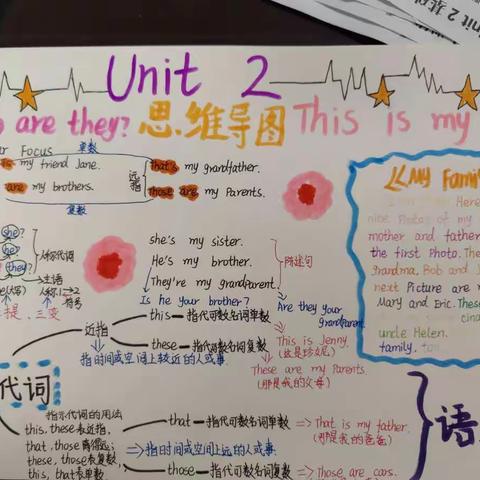 Unit 2
are they? 思维导图 This is my
Focus 单数
is my friend Jane.
That's my grandfather.
远指
are my brothers.
Those are my Parents.
复数
she?
he?
they?
人称代词
主语
she's my sister.
He's my brother.
They're my grandparent.
陈述句
Is he your brother?
Are they your
grandparent
提、三变
近指
this—指代可数名词单数
This is Jenny.
(这是珍妮)
these—指代可数名词复数
These are my Parents.
(那是我的父母)
指时间或空间上较近的人或事.
代词
指示代词的用法
this, these表近指,
that, those离得远;
these, those表复数,
this, that表单数
that—指代可数名词单数
That is my father.
(那是我的爸爸)
指时间或空间上远的人或事.
those—指代可数名词复数
Those are cars.
语
《My Fami
Here
nice Photos of my
mother and father
the first Photo. The
grandma. Bob and
next Picture are
Mary and Eric. These
uncle Helen.
family,
nit 2 基